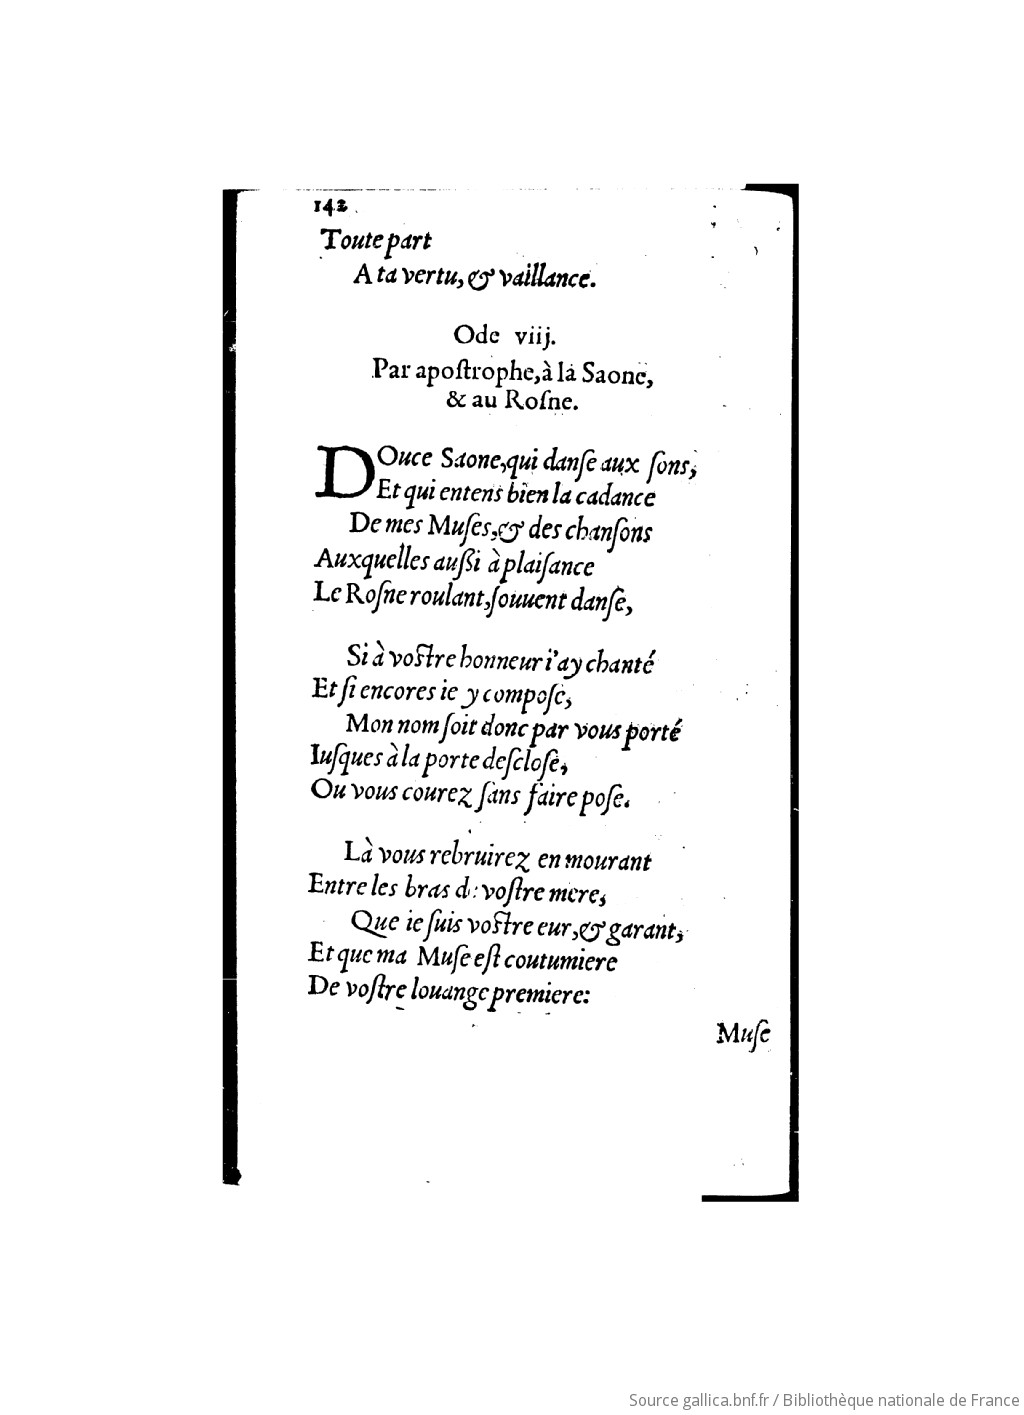 142
Toute part
A ta vertu, & vaillance.
Ode viij.
Par apoſtrophe, à la Saone,
& au Roſne.
DOuce Saone, qui danſe aux ſons,
Et qui entens bien la cadance
De mes Muſes, & des chanſons
Auxquelles außi à plaiſance
Le Roſne roulant, ſouuent danſe,
Si à voſtre honneur i'ay chanté
Et ſi encores ie y compoſe,
Mon nom ſoit donc par vous porté
Iuſques à la porte deſcloſe,
Ou vous courez ſans faire poſe.
Là vous rebruirez en mourant
Entre les bras de voſtre mere,
Que ie ſuis voſtre eur, & garant,
Et que ma Muſe eſt coutumiere
De voſtre louange premiere:
Muſe
Source gallica.bnf.fr / Bibliothèque nationale de France